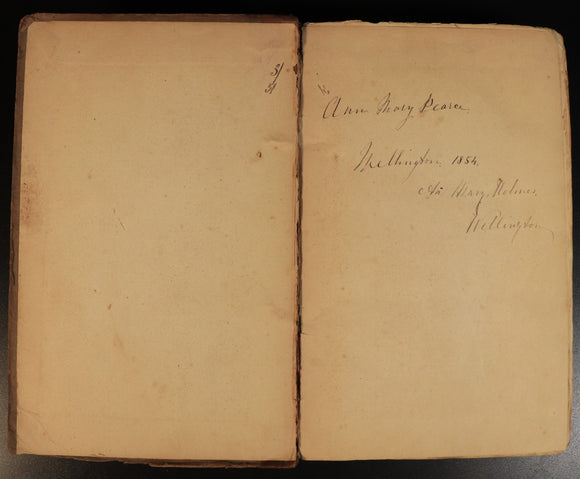 5/
Ann Mary Pearce.
Wellington 1854.
Mary Holmes.
Wellington